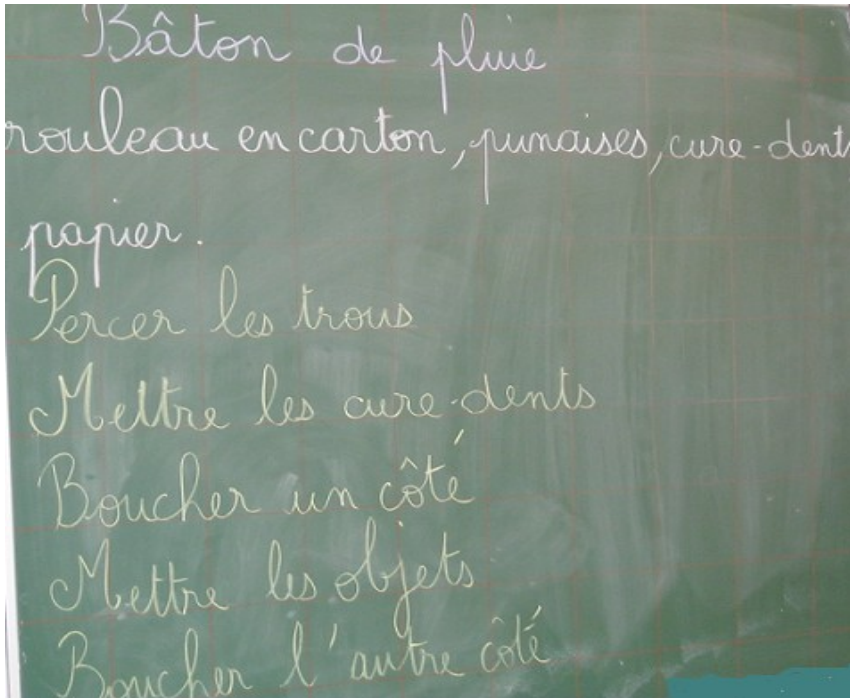 Bâton de pluie
rouleau en carton, punaises, cure-dents
papier.
Percer les trous
Mettre les cure-dents
Boucher un côté
Mettre les objets
Boucher l'autre côté